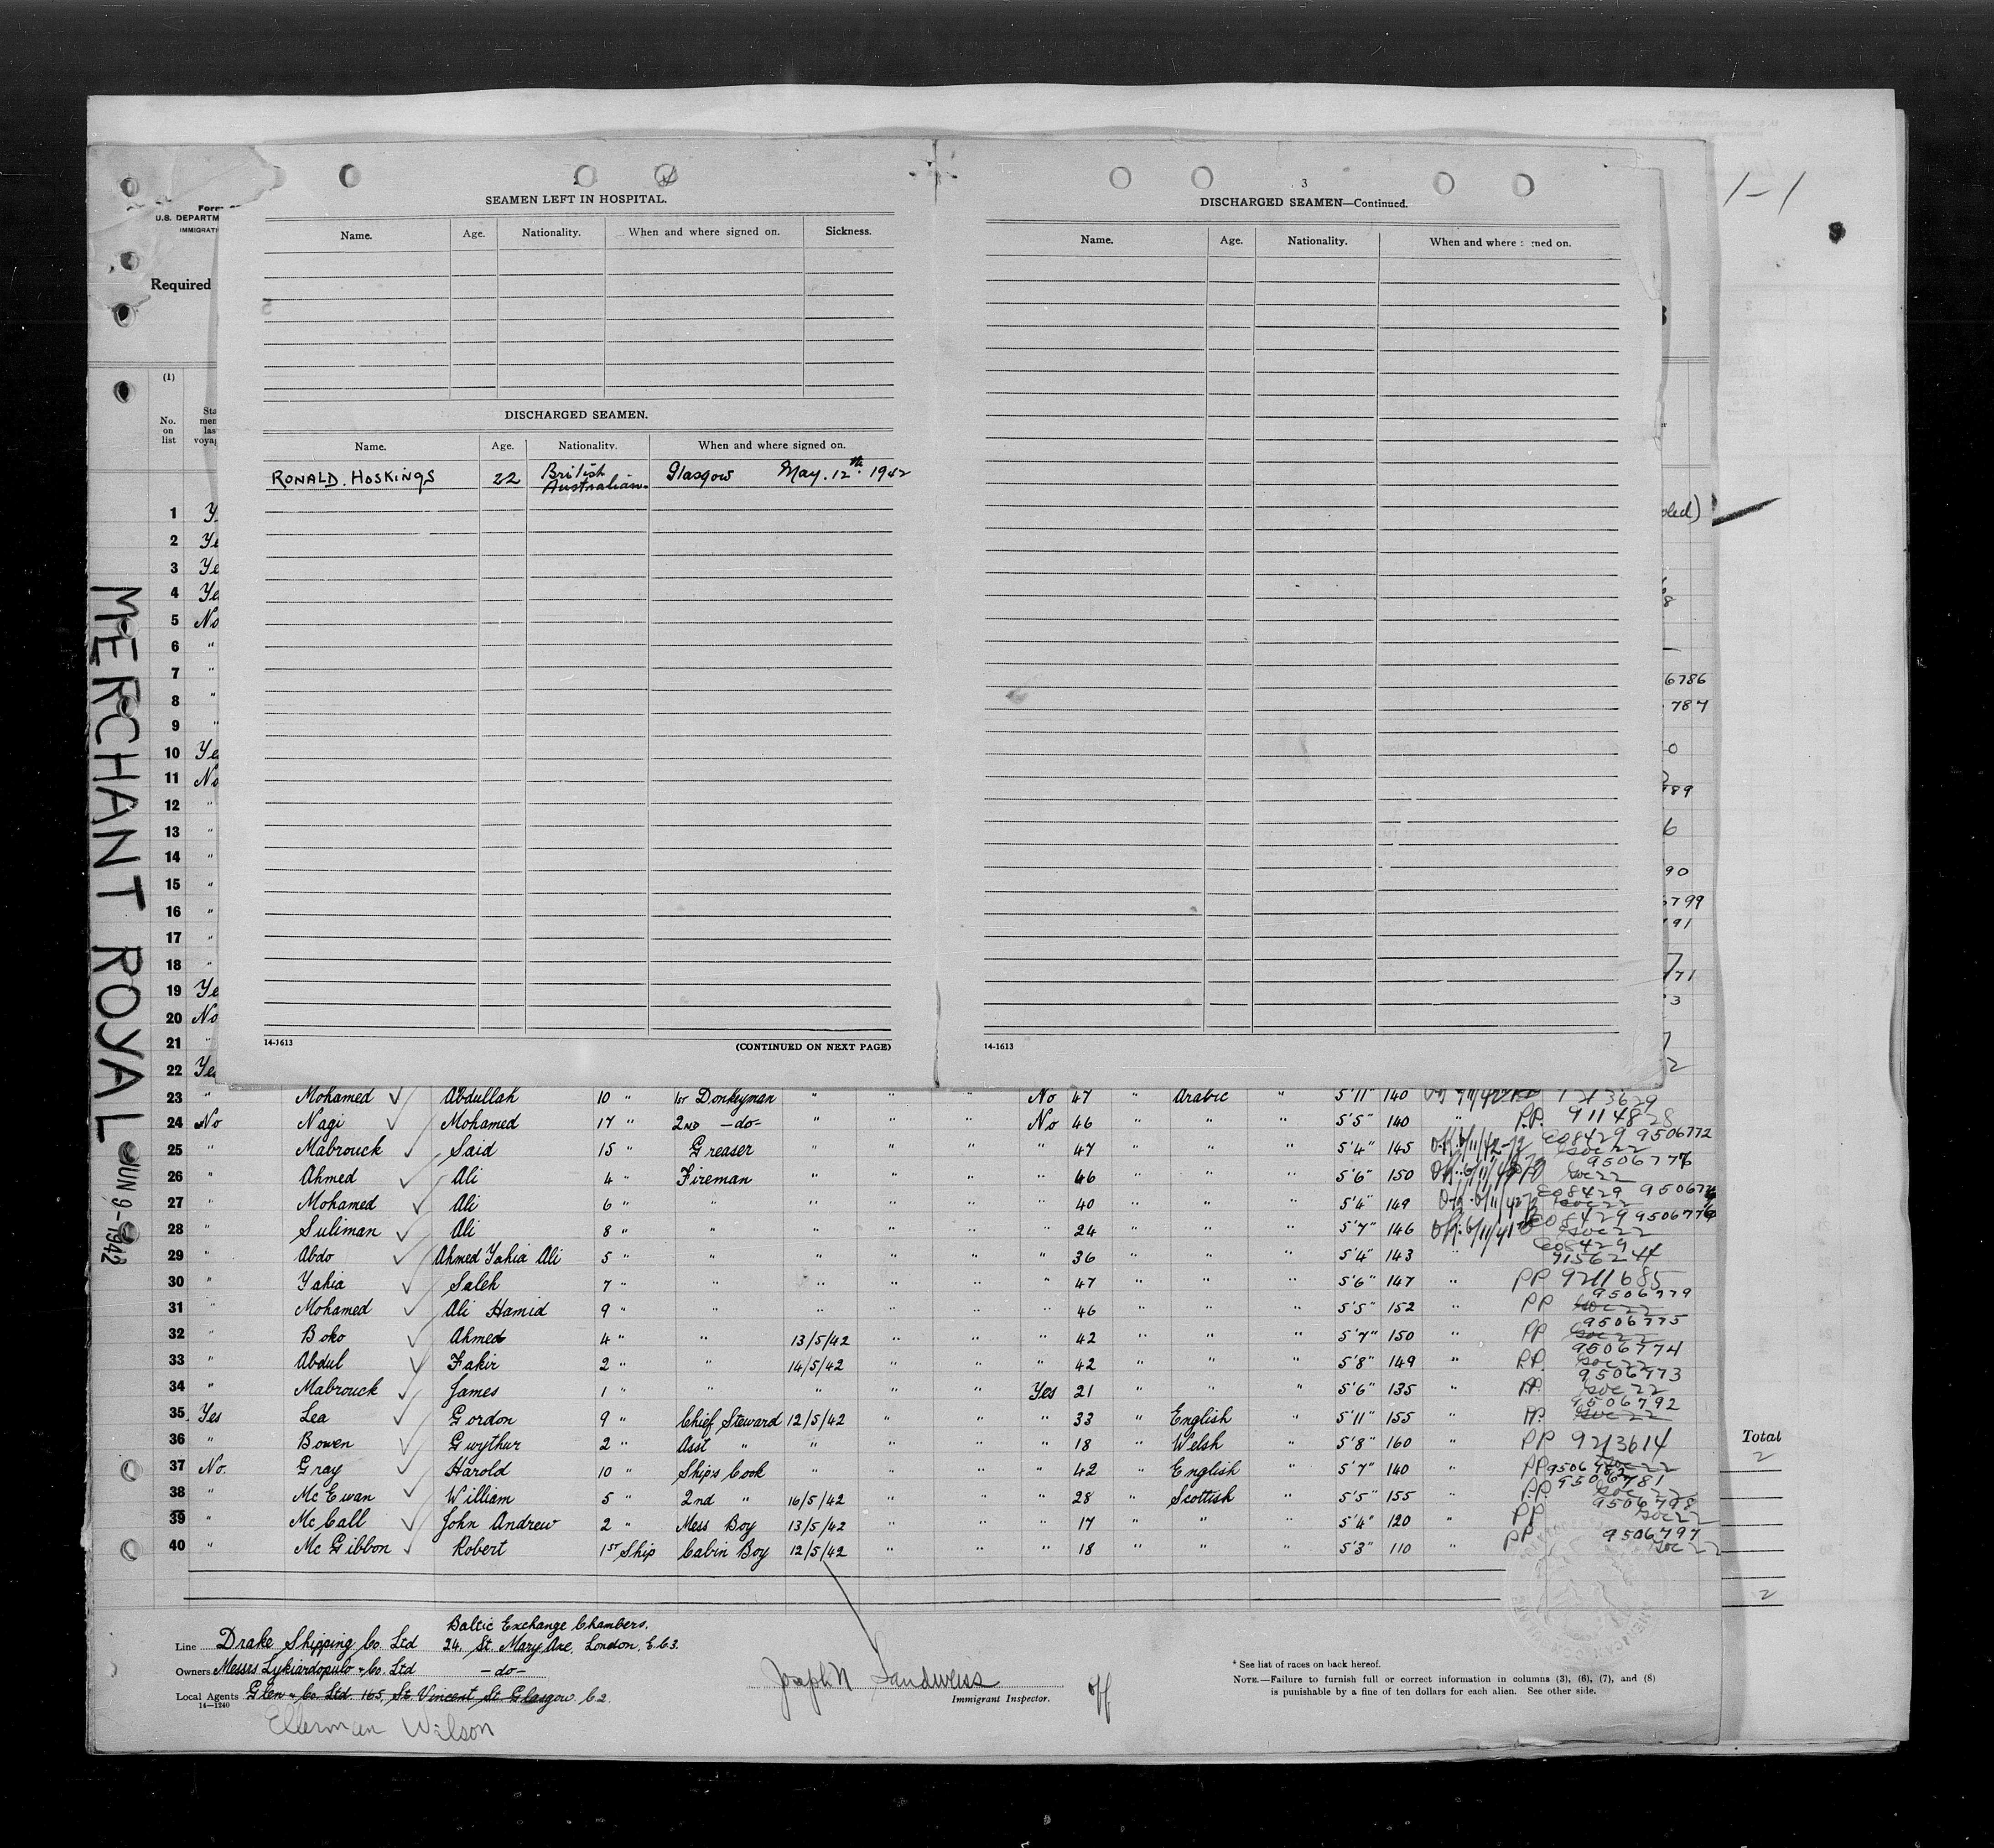 1-1
Form
U.S. DEPARTM
IMMIGRATI
Required
SEAMEN LEFT IN HOSPITAL.
Name. Age. Nationality. When and where signed on. Sickness.
DISCHARGED SEAMEN.
Name. Age. Nationality. When and where signed on.
RONALD. HOSKINGS 22 British Australian. Glasgow May. 12th. 1942
14-1613
(CONTINUED ON NEXT PAGE)
3
DISCHARGED SEAMEN—Continued.
Name. Age. Nationality. When and where ned on.
14-1613
(1)
No. on list
Sta men las voyag
MERCHANT ROYAL
JUN 9-1942
1 Y
2 Ye
3 Ye
4 Ye
5 No
6 "
7 " 6786
8 " 787
9 "
10 Ye
11 No
12 " 789
13 "
14 "
15 " 90
16 " 6799
17 " 791
18 "
19 Ye 771
20 No
21 "
22 Yes
23 Mohamed Abdullah 10 " 1st Donkeyman " " " No 47 " Arabic " 5'11" 140
24 No Nagi Mohamed 17 " 2ND -do- " " " No 46 " " " 5'5" 140 " P.P. 9114828
25 " Mabrouck Said 15 " Greaser " " " " 47 " " " 5'4" 145 C08429 9506772
26 " Ahmed Ali 4 " Fireman " " " " 46 " " " 5'6" 150
27 " Mohamed Ali 6 " " " " " " 40 " " " 5'4" 149 C08429
28 " Suliman Ali 8 " " " " " " 24 " " " 5'7" 146 C08429
29 " Abdo Ahmed Yahia Ali 5 " " " " " " 36 " " " 5'4" 143 " C08429
30 " Yahia Saleh 7 " " " " " " 47 " " " 5'6" 147 " PP 9211685
31 " Mohamed Ali Hamid 9 " " " " " " 46 " " " 5'5" 152 " PP 9506779
32 " Boko Ahmed 4 " " 13/5/42 " " " 42 " " " 5'7" 150 " PP 9506775
33 " Abdul Fakir 2 " " 14/5/42 " " " 42 " " " 5'8" 149 " P.P. 9506774
34 " Mabrouck James 1 " " " " " Yes 21 " " " 5'6" 135 " P.P. 9506773
35 Yes Lea Gordon 9 " Chief Steward 12/5/42 " " " 33 " English " 5'11" 155 " P.P. 9506792
36 " Bowen Gwythur 2 " Asst " " " " " 18 " Welsh " 5'8" 160 " PP 9213614
37 No. Gray Harold 10 " Ships Cook " " " " 42 " English " 5'7" 140 " PP
38 " Mc Ewan William 5 " 2nd " 16/5/42 " " " 28 " Scottish " 5'5" 155 " P.P. 9506781
39 " Mc Call John Andrew 2 " Mess Boy 13/5/42 " " " 17 " " " 5'4" 120 " PP 9506798
40 " Mc Gibbon Robert 1st Ship Cabin Boy 12/5/42 " " " 18 " " " 5'3" 110 " PP 9506797
Total
2
2
Line Drake Shipping Co. Ltd Baltic Exchange Chambers, 24, St. Mary Axe, London, E.C.3.
Owners Messrs Lykiardopulo & Co. Ltd -do-
Local Agents Glen & Co. Ltd. 165, St. Vincent St. Glasgow. C2.
14—1240
Ellerman Wilson
Joseph N Sandweiss
Immigrant Inspector.
* See list of races on back hereof.
NOTE.—Failure to furnish full or correct information in columns (3), (6), (7), and (8)
is punishable by a fine of ten dollars for each alien. See other side.